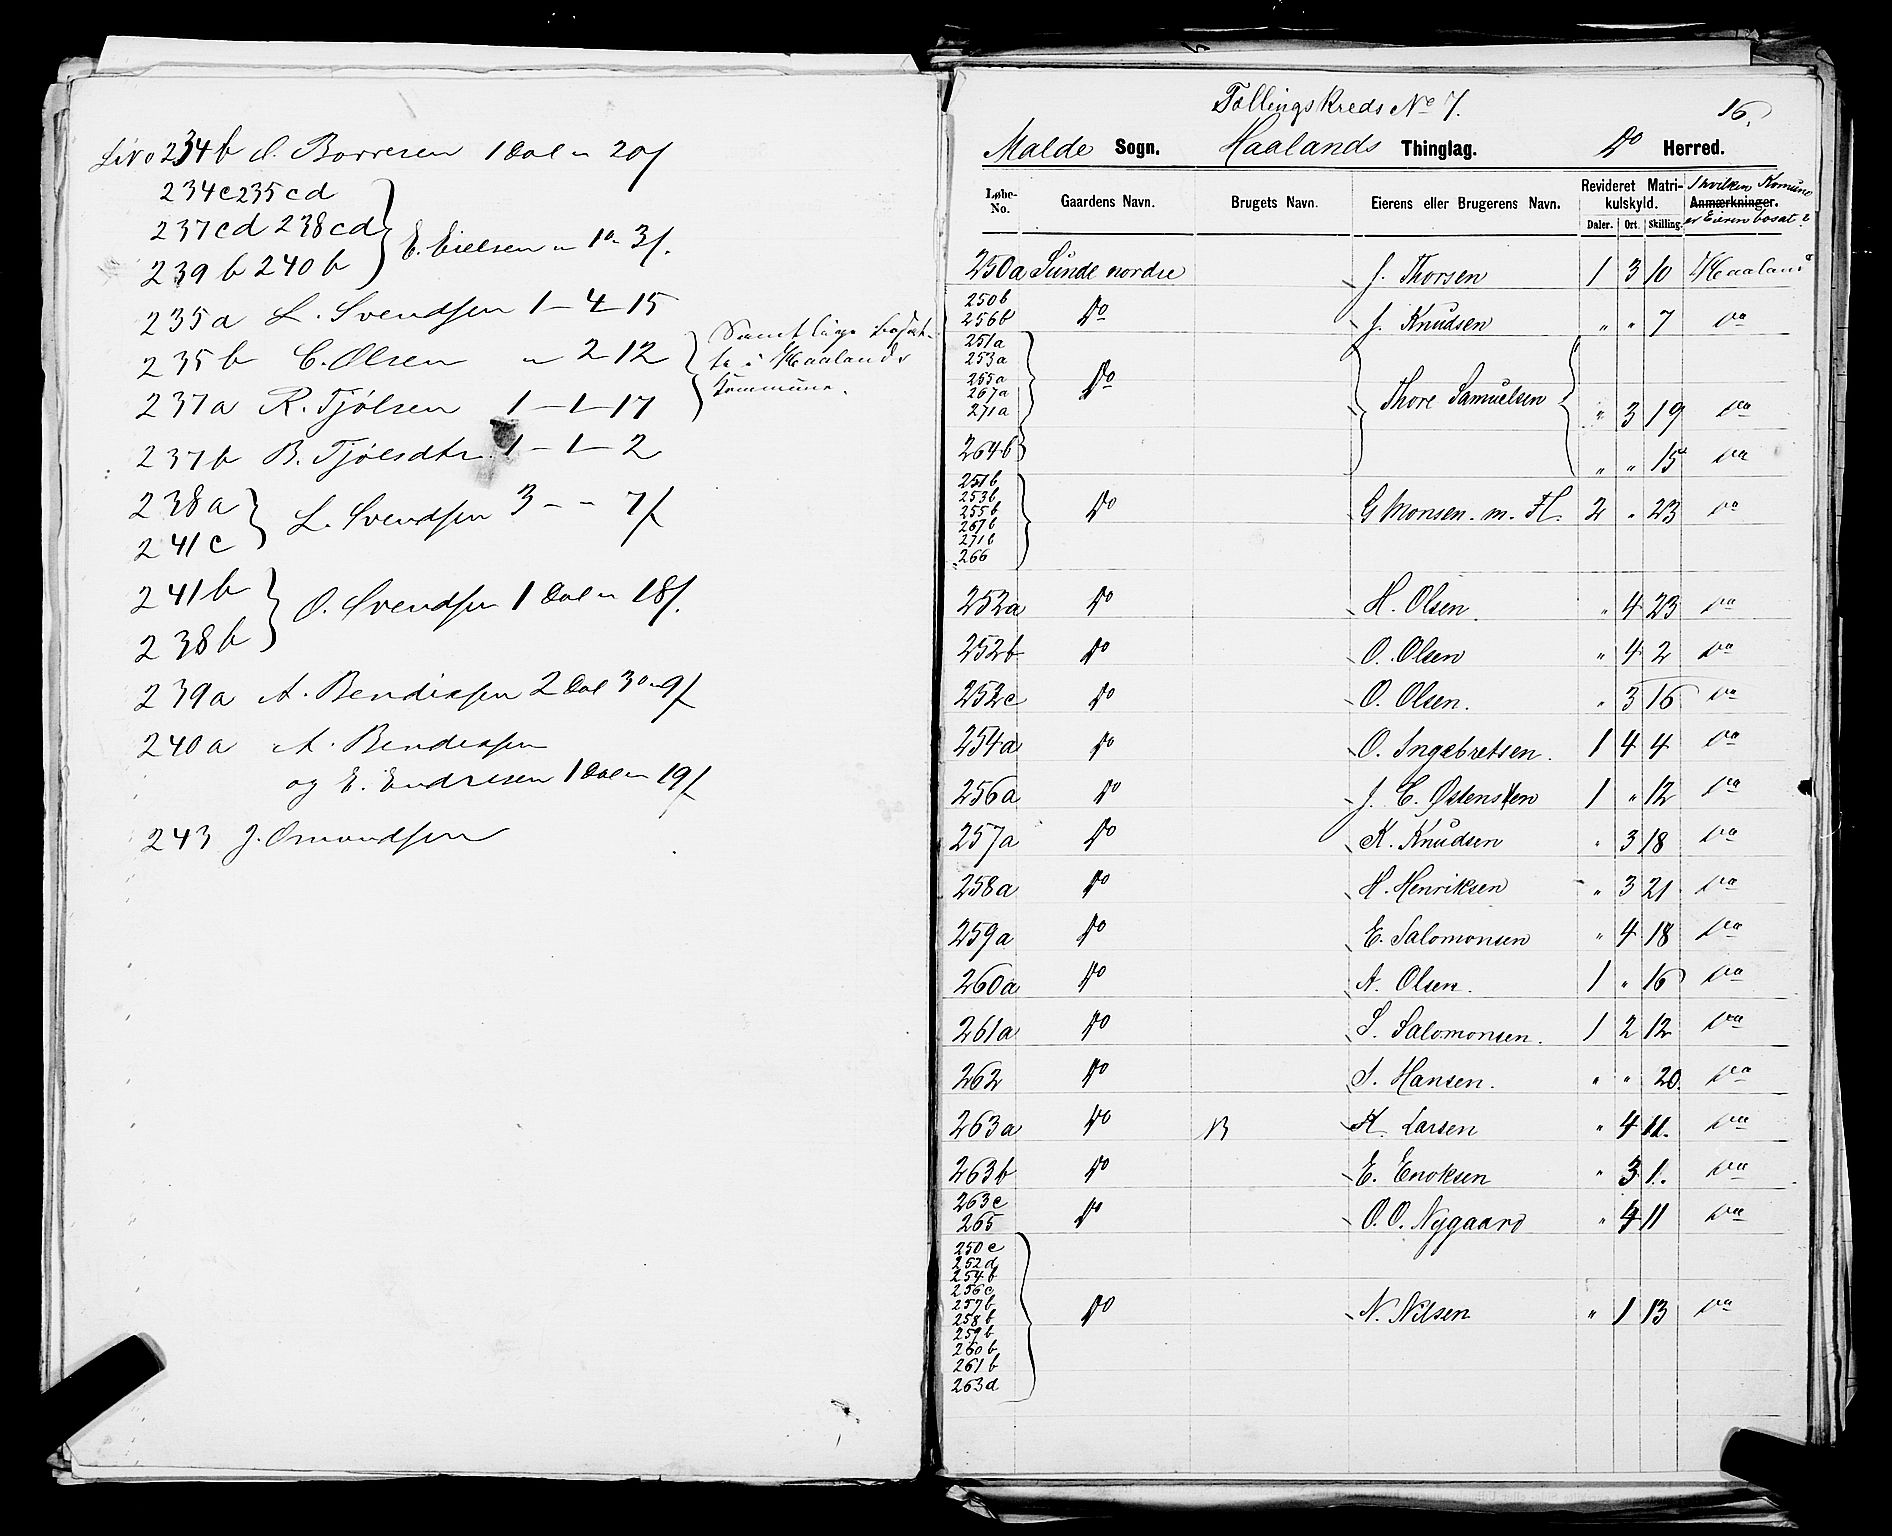 Liv o 234b O. Borresen 1 Dal " 20ſ
234c 235cd
237cd 238cd
239b 240b } E. Eielsen " 1o 3ſ.
235a L. Svendsen 1 – 4 – 15
235b C. Olsen " – 2 – 12 } Samtlige bosat-
te i Haalands
Kommune.
237a R. Tjølsen 1 – 1 – 17
237b B. Tjølsdtr. 1 – 1 – 2
238a
241c } L. Svendsen 3 – – 7ſ
241b
238b } O. Svendsen 1 Dal " 18ſ.
239a A. Bendixsen 2 Dal 3o 9ſ
240a A. Bendixsen
og E. Endresen 1 Dal " 19ſ
243 J. Omundsen
Tællingskreds No 7.
16.
Malde Sogn. Haalands Thinglag. Do Herred.
Løbe-No. Gaardens Navn. Brugets Navn. Eierens eller Brugerens Navn. Revideret Matrikulskyld. Daler. Ort. Skilling. Anmærkninger. I hvilken Komune er Eieren bosat?
250a Sunde nordre J. Thorsen 1 3 10 Haaland
250b
256b Do J. Knudsen " " 7 Do
251a
253a
255a
267a
271a } Do { Thore Samuelsen } " 3 19 Do
264b } " " 15 Do
251b
253b
255b
267b
271b
266 } Do G Monsen. m. Fl. 2 " 23 Do
252a Do H. Olsen. " 4 23 Do
252b Do O. Olsen " 4 2 Do
252c Do O. Olsen. " 3 16 Do
254a Do O. Ingebretsen. 1 4 4 Do
256a Do J. C. Østensen 1 " 12 Do
257a Do K. Knudsen " 3 18 Do
258a Do H. Henriksen " 3 21 Do
259a Do E. Salomonsen " 4 18 Do
260a Do A. Olsen. 1 " 16 Do
261a Do S. Salomonsen. 1 2 12 Do
262 Do S. Hansen. " " 20. Do
263a Do B K. Larsen " 4 11. Do
263b Do E. Enoksen " 3 1. Do
263c
265 Do O. O. Nygaard " 4 11 Do
250c
252d
254b
256c
257b
258b
259b
260b
261b
263d } Do N. Nilsen " 1 13 Do